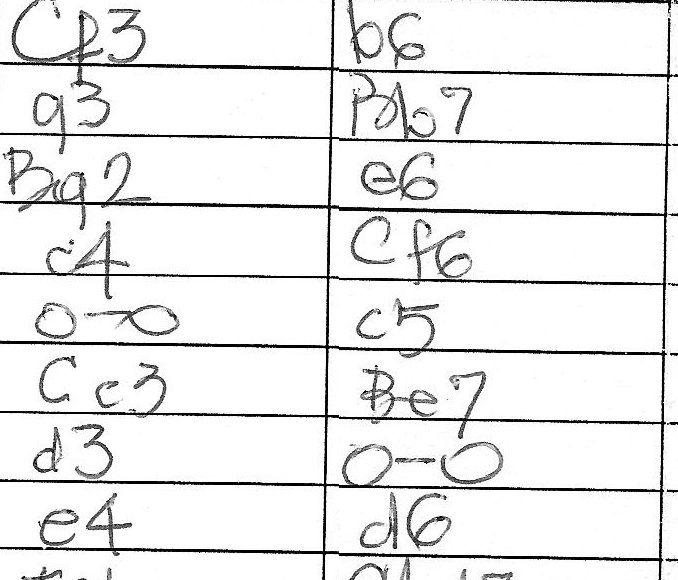 Cf3 b6
g3 Bb7
Bg2 e6
c4 Cf6
0-0 c5
Cc3 Be7
d3 0-0
e4 d6